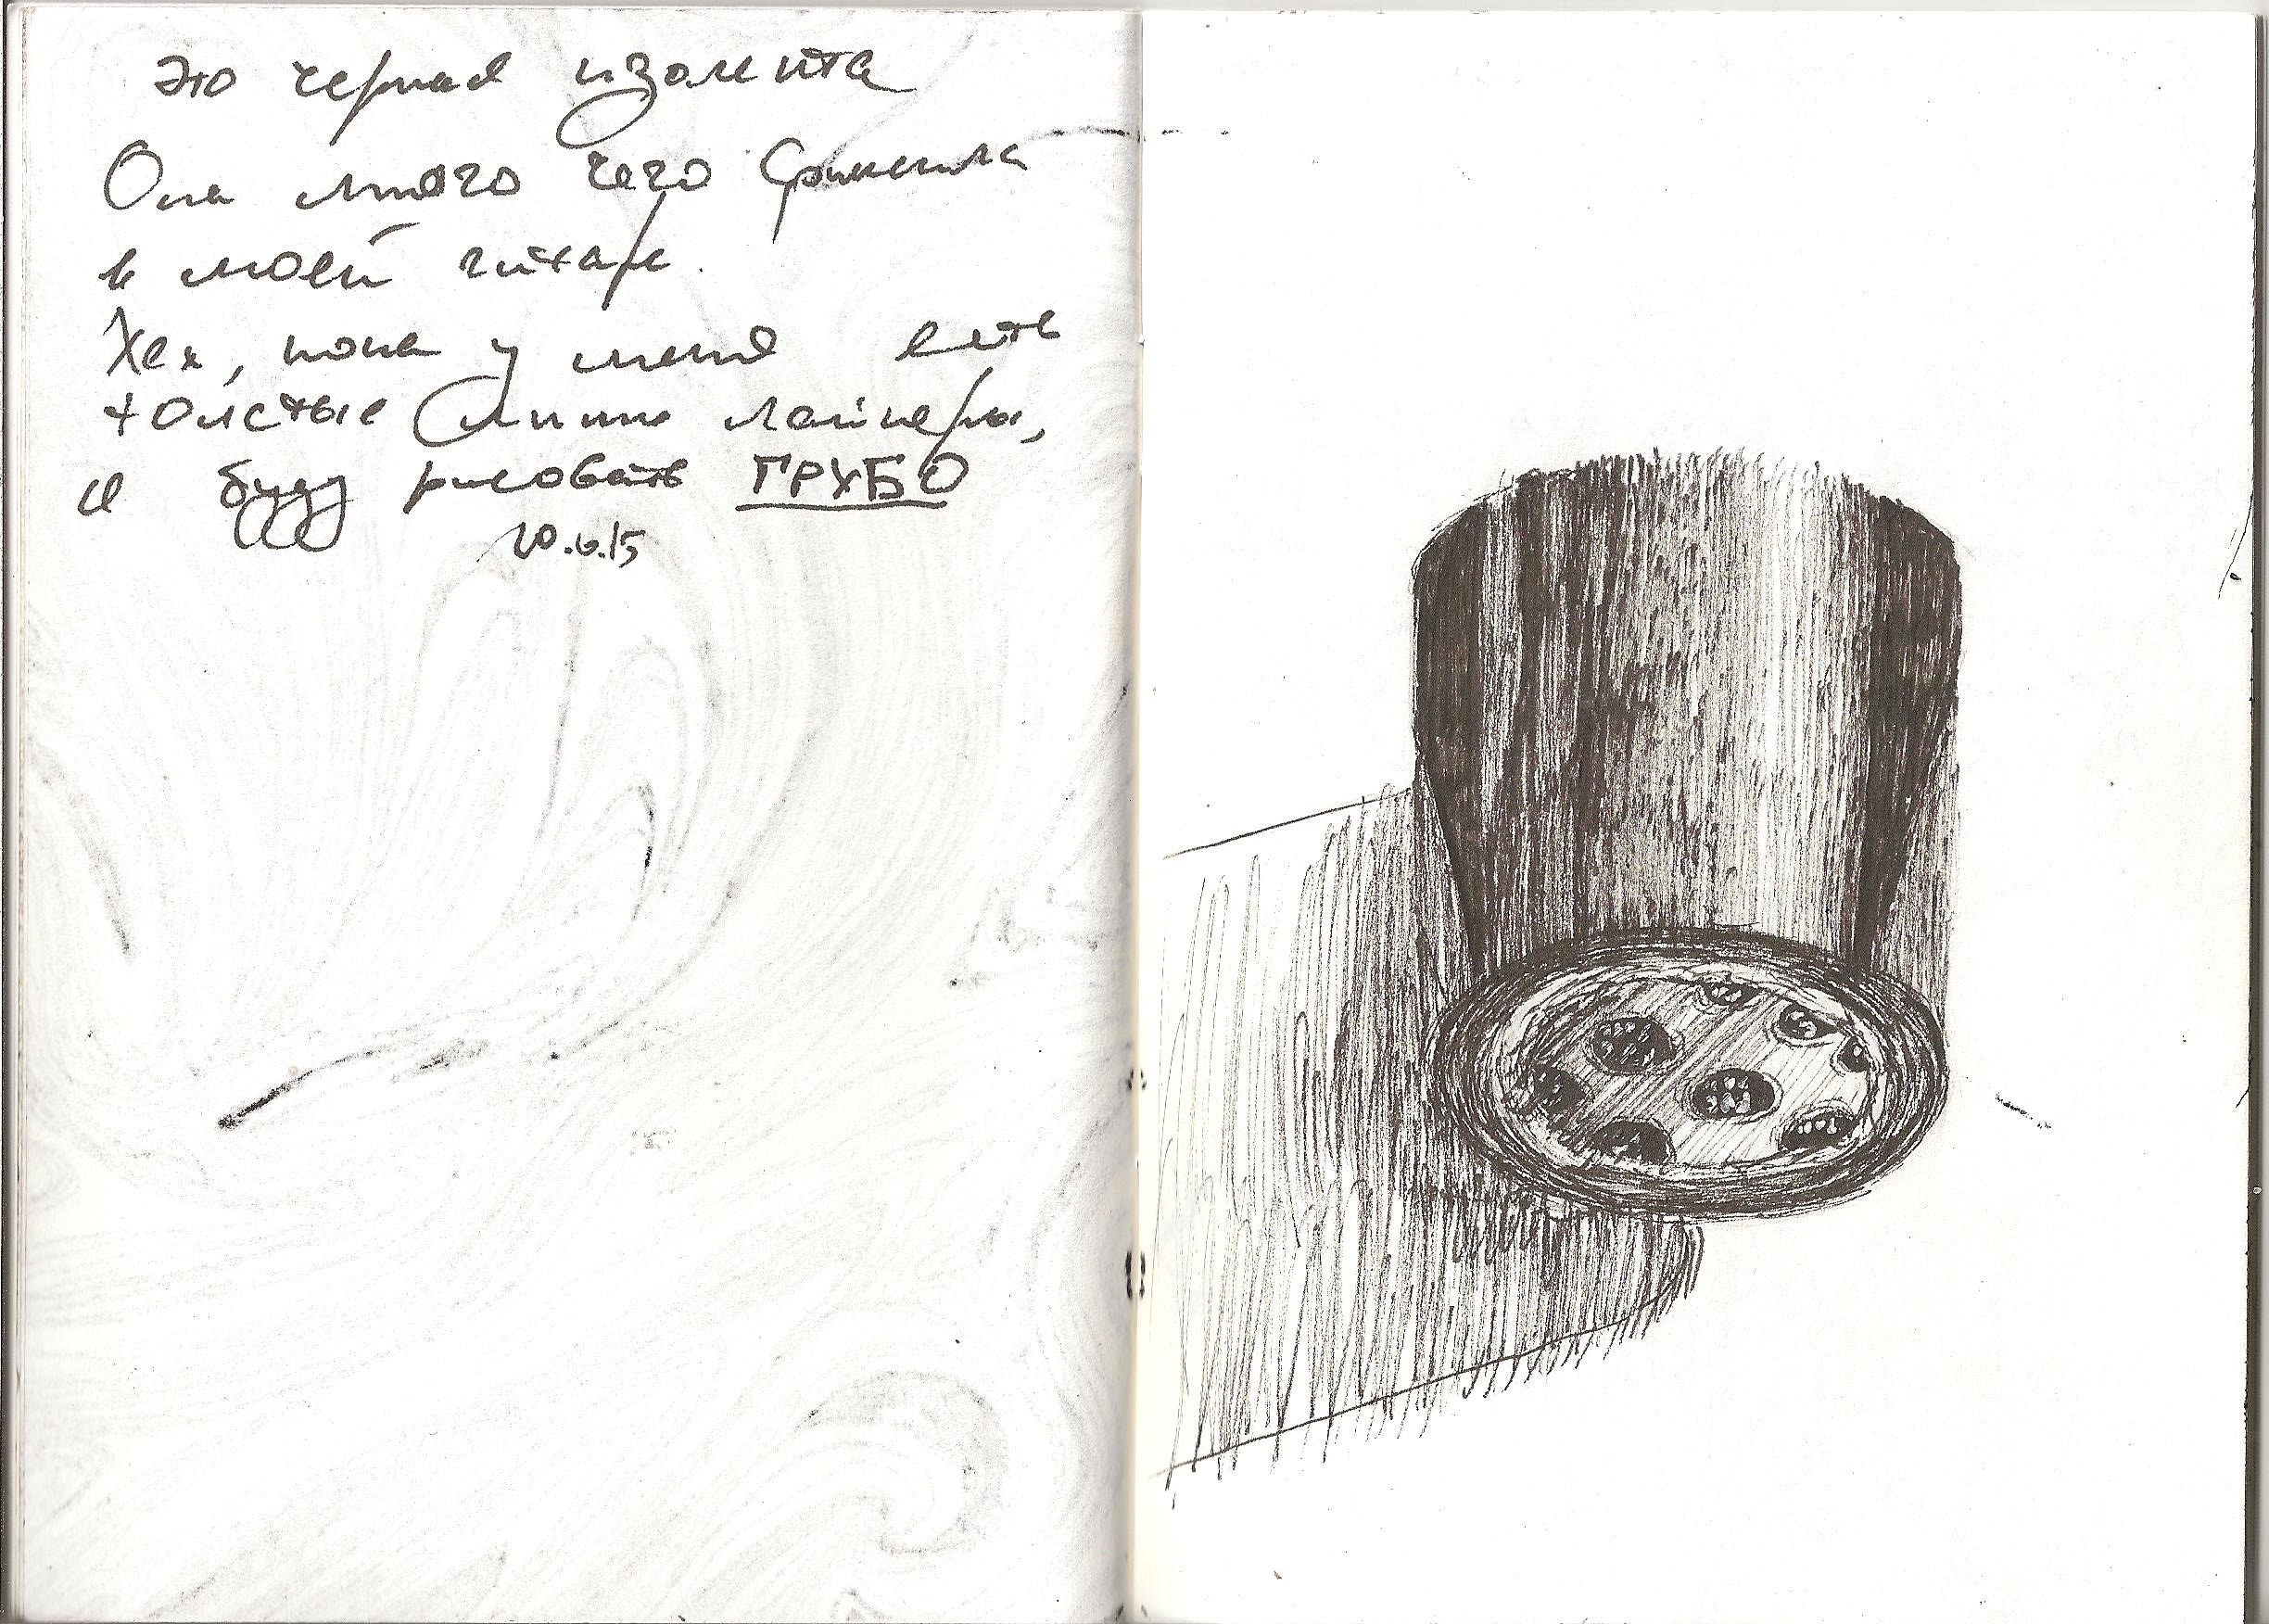 Это черная изолента
Она много чего фиксила
в моей гитаре.
Хех, пока у меня есть
толстые линии лайнеры,
я буду рисовать ГРУБО
20.6.15